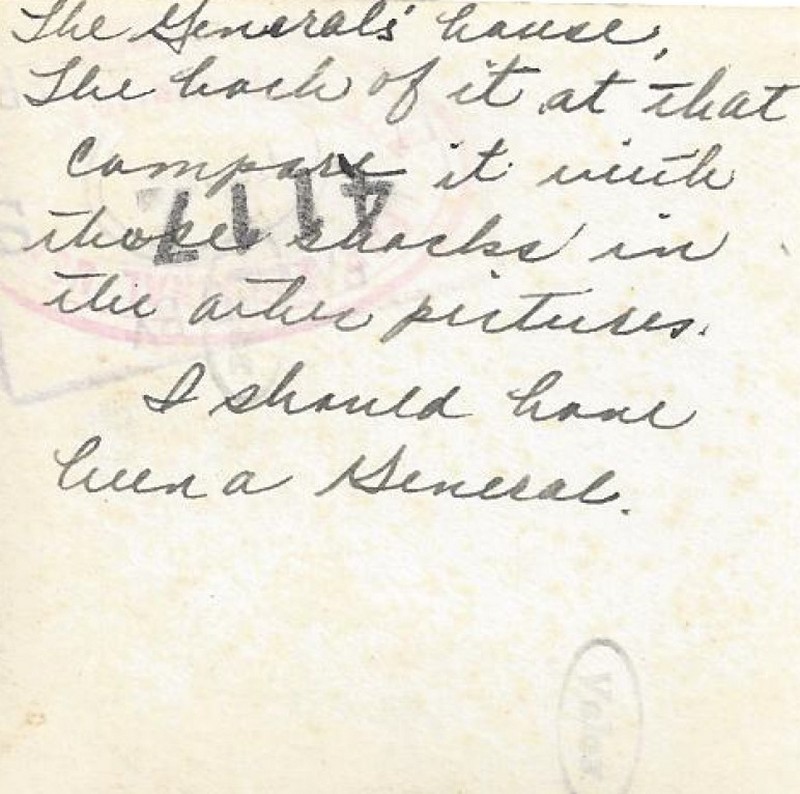 The Generals' house,
The back of it at that
Compare it with
those shacks in
the other pictures.
I should have
been a General.
4117
Velox